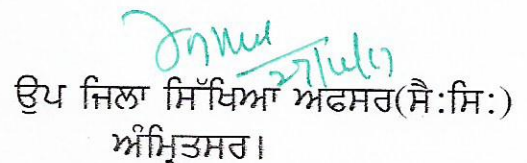 ਉਪ ਜਿਲਾ ਸਿੱਖਿਆ ਅਫਸਰ(ਸੈ:ਸਿ:)
ਅੰਮ੍ਰਿਤਸਰ।